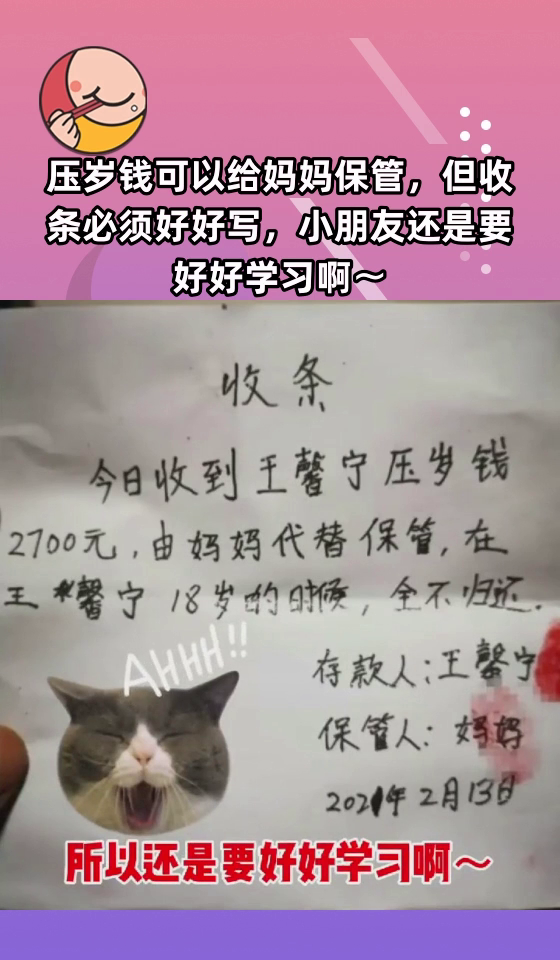 压岁钱可以给妈妈保管，但收
条必须好好写，小朋友还是要
好好学习啊～
收条
今日收到王馨宁压岁钱
2700元，由妈妈代替保管，在
王馨宁18岁的时候，全不归还．
AHHH!!
存款人：王馨宁
保管人：妈妈
2021年2月13日
所以还是要好好学习啊～